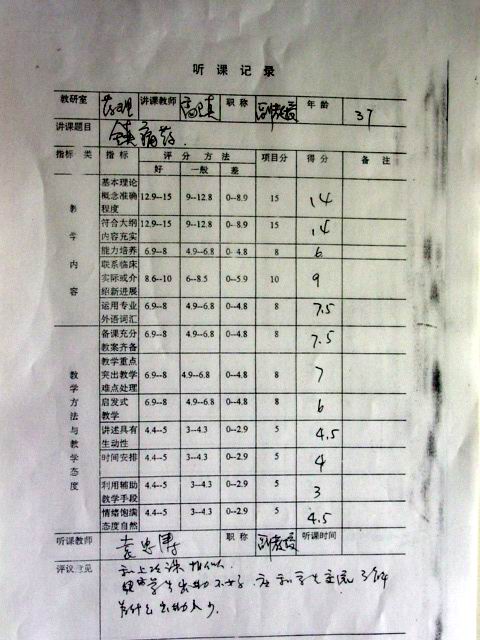 听 课 记 录
教研室 药理 讲课教师 职 称 副教授 年 龄 37
讲课题目 镇痛药
指标 类 指 标 评 分 方 法 项目分 得 分 备 注
好 一般 差
教 学 内 容
基本理论概念准确程度 12.9--15 9--12.8 0--8.9 15 14
符合大纲内容充实 12.9--15 9--12.8 0--8.9 15 14
能力培养 6.9--8 4.9--6.8 0--4.8 8 6
联系临床实际或介绍新进展 8.6--10 6--8.5 0--5.9 10 9
运用专业外语词汇 6.9--8 4.9--6.8 0--4.8 8 7.5
教学方法与教学态度
备课充分教案齐备 6.9--8 4.9--6.8 0--4.8 8 7.5
教学重点突出教学难点处理 6.9--8 4.9--6.8 0--4.8 8 7
启发式教学 6.9--8 4.9--6.8 0--4.8 8 6
讲述具有生动性 4.4--5 3--4.3 0--2.9 5 4.5
时间安排 4.4--5 3--4.3 0--2.9 5 4
利用辅助教学手段 4.4--5 3--4.3 0--2.9 5 3
情绪饱满态度自然 4.4--5 3--4.3 0--2.9 5 4.5
听课教师 职 称 副教授 听课时间
评议意见 和上次课相似.
学生出勤不好. 应和学生交流了解
为什么出勤人少.